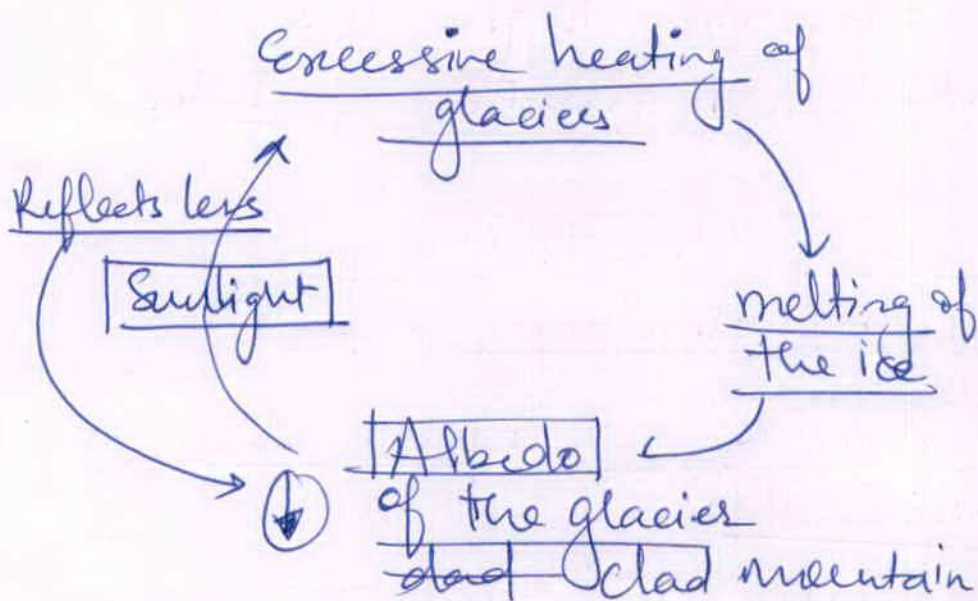 Excessive heating of
glaciers
Reflects less
Sunlight
melting of
the ice
Albedo
of the glacier
clad clad mountain